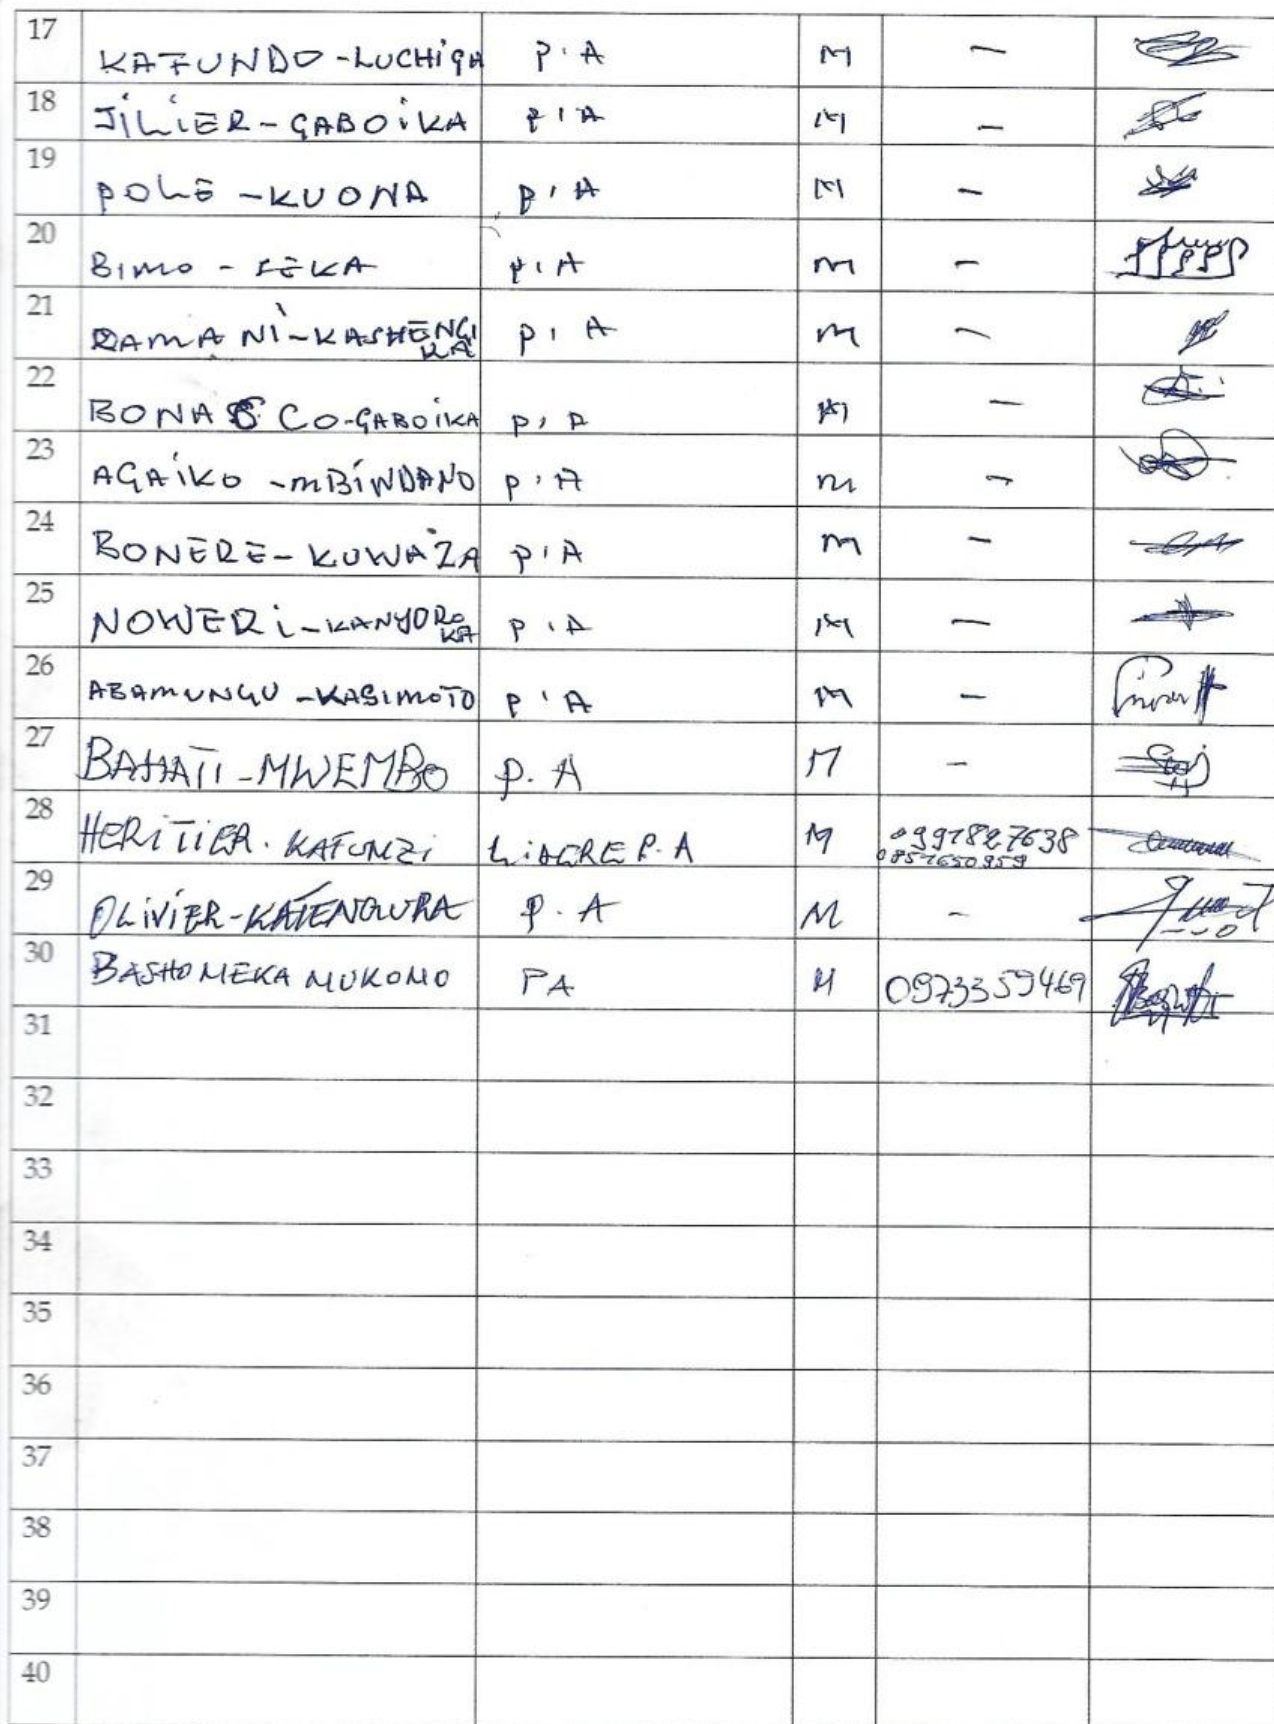 17 KAFUNDO-LUCHIGA P.A M –
18 JILIER-GABOIKA P.A M –
19 POLE-KUONA P.A M –
20 BIMO-SEKA P.A M –
21 RAMANI-KASHENGI P.A M –
KA
22 BONASCO-GABOIKA P.A M –
23 AGAIKO-MBINDANO P.A M –
24 BONERE-KUWAZA P.A M –
25 NOWERI-KANYORO P.A M –
KA
26 ABAMUNGU-KASIMOTO P.A M –
27 BAHATI-MWEMBO P.A M –
28 HERITIER.KAFUNZI P.A M 0991827638
29 OLIVIER- P.A M –
30 BASHOMEKA MUKOMO PA M 0973359469
31
32
33
34
35
36
37
38
39
40